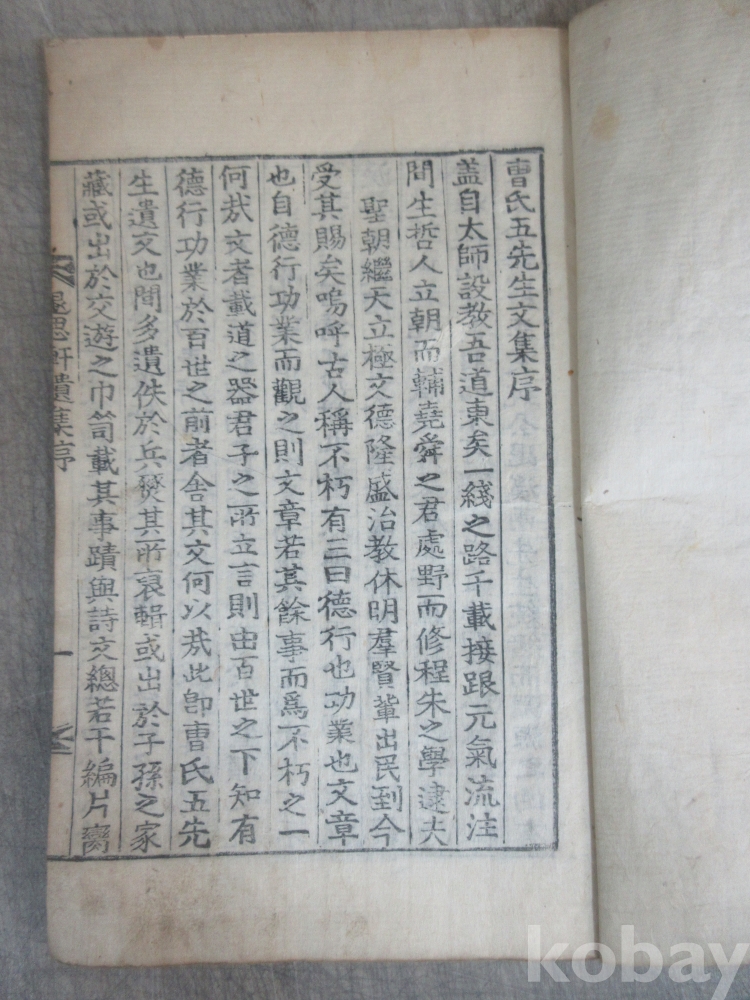 曺氏五先生文集序
盖自太師設教吾道東矣一綫之路千載接跟元氣流注
間生哲人立朝而輔堯舜之君處野而修程朱之學逮夫
聖朝繼天立極文德隆盛治教休明羣賢輩出民到今
受其賜矣嗚呼古人稱不朽有三曰德行也功業也文章
也自德行功業而觀之則文章若其餘事而爲不朽之一
何㢤文者載道之器君子之所立言則由百世之下知有
德行功業於百世之前者舍其文何以㢤此卽曺氏五先
生遺文也間多遺佚於兵燹其所裒輯或出於子孫之家
藏或出於交遊之巾笥載其事蹟與詩文總若干編片臠
思軒遺集序
一
kobay